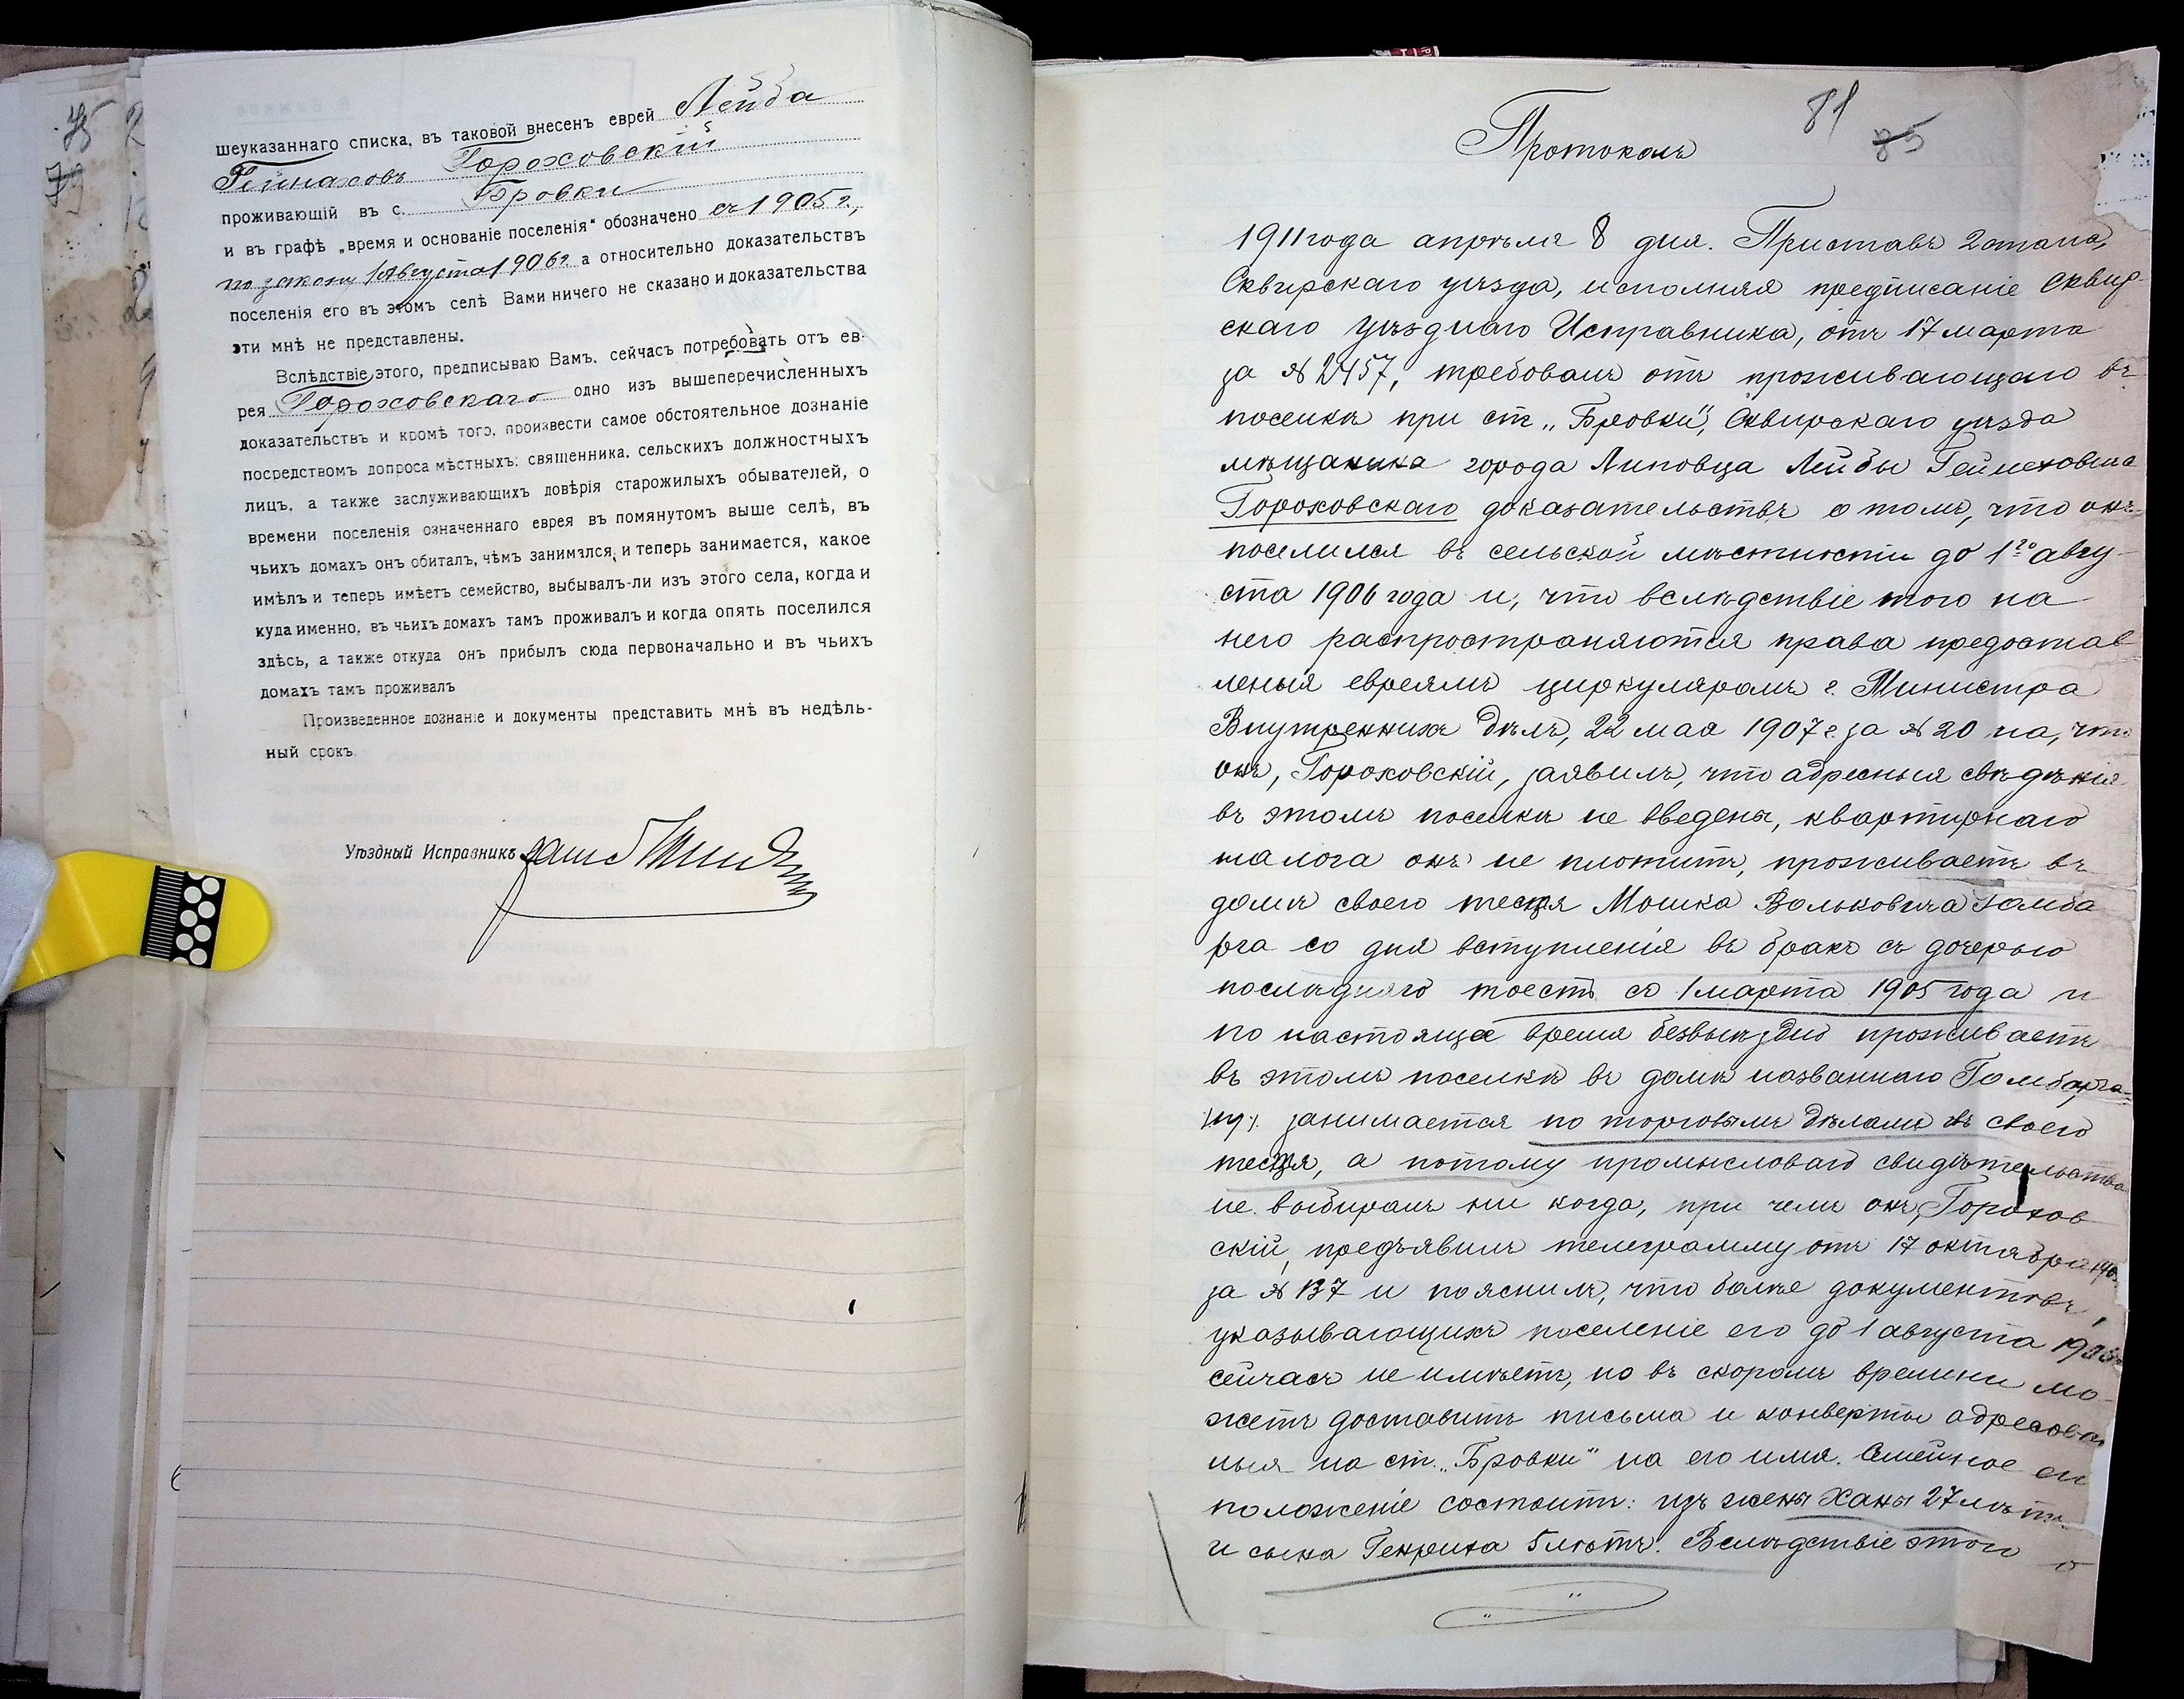 шеуказаннаго списка, въ таковой внесенъ еврей Лейба
Гейнаховъ Гороховскій
проживающій въ с. Бровки
и въ графѣ „время и основаніе поселенія“ обозначено съ 1905 г.,
по закону 1 Августа 1906 г. а относительно доказательствъ
поселенія его въ этомъ селѣ Вами ничего не сказано и доказательства
эти мнѣ не представлены.
Вслѣдствіе этого, предписываю Вамъ, сейчасъ потребовать отъ ев-
рея Гороховскаго одно изъ вышеперечисленныхъ
доказательствъ и кромѣ того, произвести самое обстоятельное дознаніе
посредствомъ допроса мѣстныхъ: священника, сельскихъ должностныхъ
лицъ, а также заслуживающихъ довѣрія старожилыхъ обывателей, о
времени поселенія означеннаго еврея въ помянутомъ выше селѣ, въ
чьихъ домахъ онъ обиталъ, чѣмъ занимался и теперь занимается, какое
имѣлъ и теперь имѣетъ семейство, выбывалъ-ли изъ этого села, когда и
куда именно, въ чьихъ домахъ тамъ проживалъ и когда опять поселился
здѣсь, а также откуда онъ прибылъ сюда первоначально и въ чьихъ
домахъ тамъ проживалъ
Произведенное дознаніе и документы представить мнѣ въ недѣль-
ный срокъ.
Уѣздный Исправникъ
81
85
Протоколъ
1911 года апрѣля 8 дня. Приставъ 2 стана,
Сквирскаго уѣзда, исполняя предписаніе Сквир-
скаго Уѣзднаго Исправника, отъ 17 марта
за № 2457, требовалъ отъ проживающаго въ
поселкѣ при ст. „Бровки“, Сквирскаго уѣзда
мѣщанина города Липовца Лейбы Гейнеховича
Гороховскаго доказательствъ о томъ, что онъ
поселился въ сельской мѣстности до 1го авгу-
ста 1906 года и, что вслѣдствіе того на
него распространяются права предостав-
леныя евреямъ циркуляромъ г. Министра
Внутреннихъ Дѣлъ, 22 мая 1907 г. за № 20 на, что
онъ, Гороховскій, заявилъ, что адресныя свѣдѣнія
въ этомъ поселкѣ не введены, квартирнаго
налога онъ не плотитъ, проживаетъ въ
домѣ своего тестя Мошка Вольковича Гомба
рга со дня вступленія въ бракъ съ дочерью
послѣдняго тоесть со 1 марта 1905 года и
по настояще время безвыѣздно проживаетъ
въ этомъ поселкѣ въ домѣ названнаго Гомбарга
занимается по торговымъ дѣламъ въ своего
тестя, а потому промысловаго свидѣтельства
не выбиралъ ни когда, при чемъ онъ, Горохов
скій, предъявилъ телеграмму отъ 17 октября
за № 137 и пояснилъ, что болѣе документовъ,
указывающихъ поселеніе его до 1 августа
сейчасъ не имѣетъ, но въ скоромъ времени мо-
жетъ доставить письма и конверты адресован
ныя на ст. „Бровки“ на его имя. Семейное ег
положеніе состоитъ: изъ жены Ханы 27 лѣтъ
и сына Генриха 5 лѣтъ. Вслѣдствіе этого о